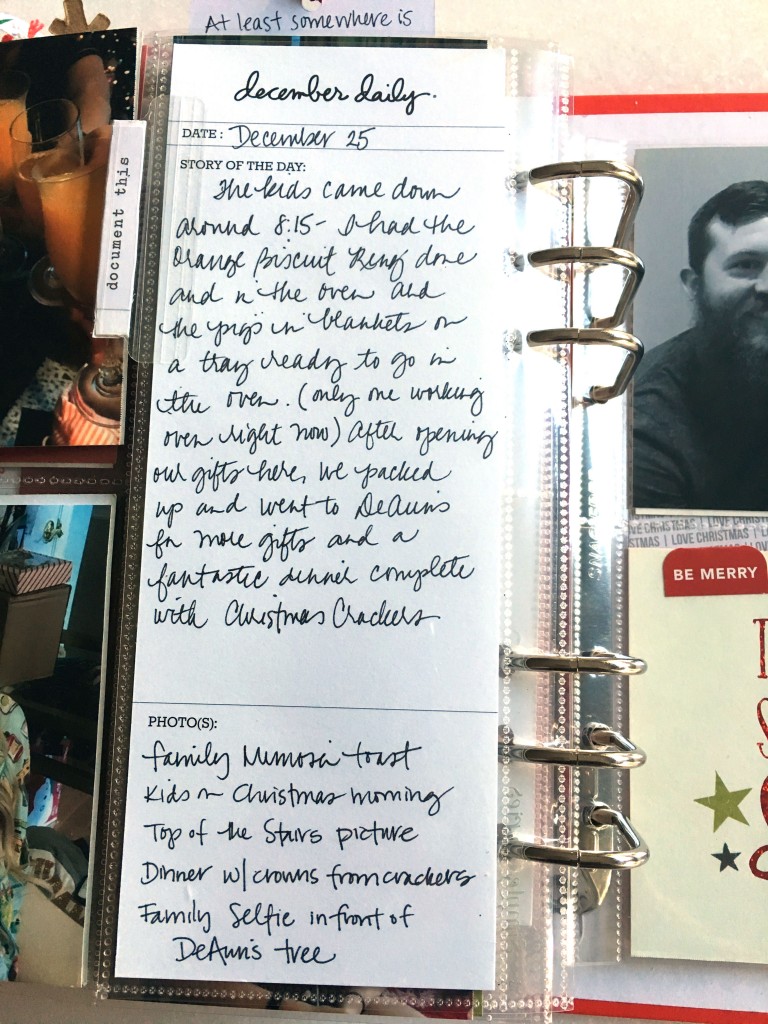 At least somewhere is
december daily.
DATE: December 25
STORY OF THE DAY:
The kids came down
around 8:15- I had the
Orange Biscuit Ring done
and in the oven and
the pigs in blankets on
a tray ready to go in
the oven. (only one working
oven right now) After opening
our gifts here, we packed
up and went to DeAnn's
for more gifts and a
fantastic dinner complete
with Christmas Crackers
PHOTO(S):
family Mimosa toast
Kids on Christmas morning
Top of the Stairs picture
Dinner w/ crowns from crackers
Family Selfie in front of
DeAnn's tree
document this
VE CHRISTMAS | LOVE CHRISTMAS | LO
STMAS | LOVE CHRISTMAS | LOV
BE MERRY